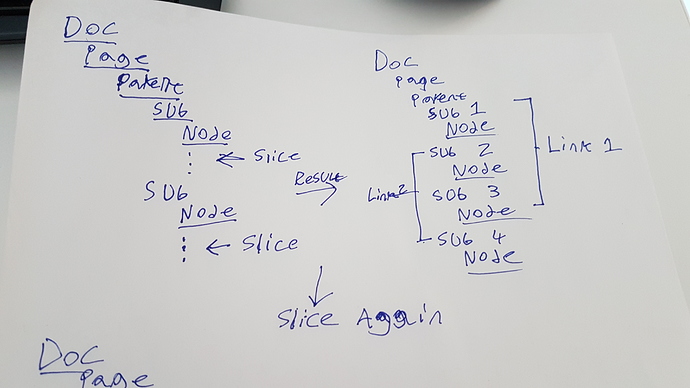 Doc
Page
Parent
SUB
Node
← Slice
SUB
Node
← Slice
Result
Doc
page
parent
SUB 1
Node
SUB 2
Node
SUB 3
Node
SUB 4
Node
Link 1
Link 2
Slice Again
Doc
Page